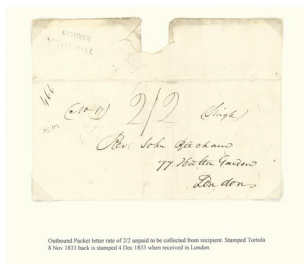 2/2
(Single)
Rev. John Beecham
77. Hatton Garden
London
Outbound Packet letter rate of 2/2 unpaid to be collected from recipient. Stamped Tortola
8 Nov 1833 back is stamped 4 Dec 1833 when received in London